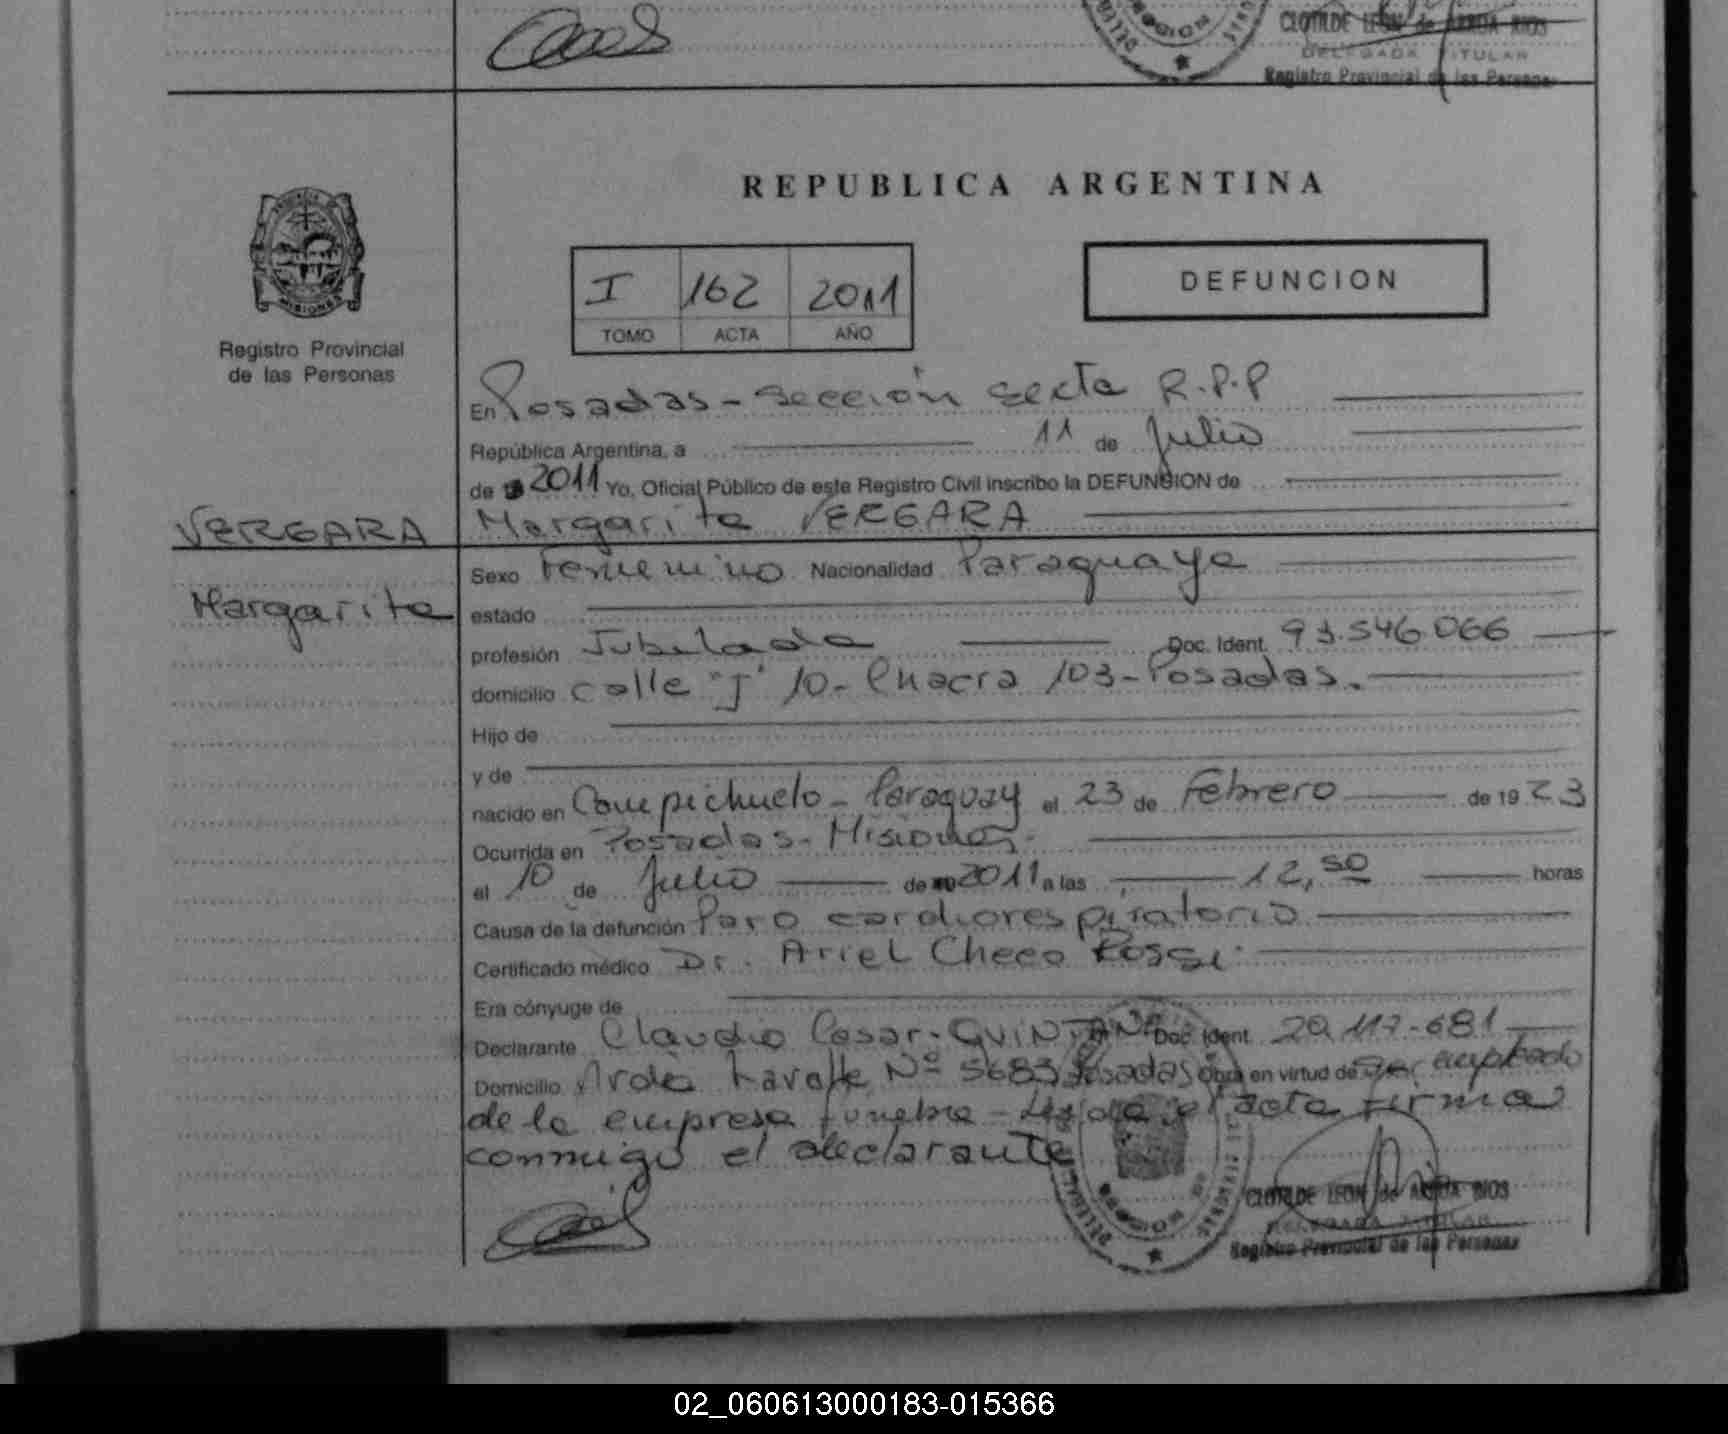 CLOTILDE LEON de ARRUA RIOS
DELEGADA TITULAR
Registro Provincial de las Personas
REPUBLICA ARGENTINA
MISIONES
Registro Provincial
de las Personas
I 162 2011
TOMO ACTA AÑO
DEFUNCION
En Posadas - Sección Sexta R.P.P
República Argentina, a 11 de Julio
de 2011 Yo, Oficial Público de este Registro Civil inscribo la DEFUNSION de
VERGARA Margarita VERGARA
Margarita
Sexo Femenino Nacionalidad Paraguaya
estado
profesión Jubilada Doc. Ident. 93.546.066
domicilio calle "J" 10 - Chacra 103 - Posadas.
Hijo de
y de
nacido en Campichuelo - Paraguay el 23 de Febrero de 1923
Ocurrida en Posadas - Misiones.
el 10 de Julio de 2011 a las 12,50 horas
Causa de la defunción Paro cardiorespiratorio
Certificado médico Dr. Ariel Checo Rossi.
Era cónyuge de
Declarante Claudio Cesar - QUINTANA Doc. Ident. 20.117.681
Domicilio Lavalle Nº 5683 Posadas Obra en virtud de ser empleado
de la empresa funebre - Leída el acta firma
conmigo el declarante
CLOTILDE LEON de ARRUA RIOS
DELEGADA TITULAR
Registro Provincial de las Personas
02_060613000183-015366